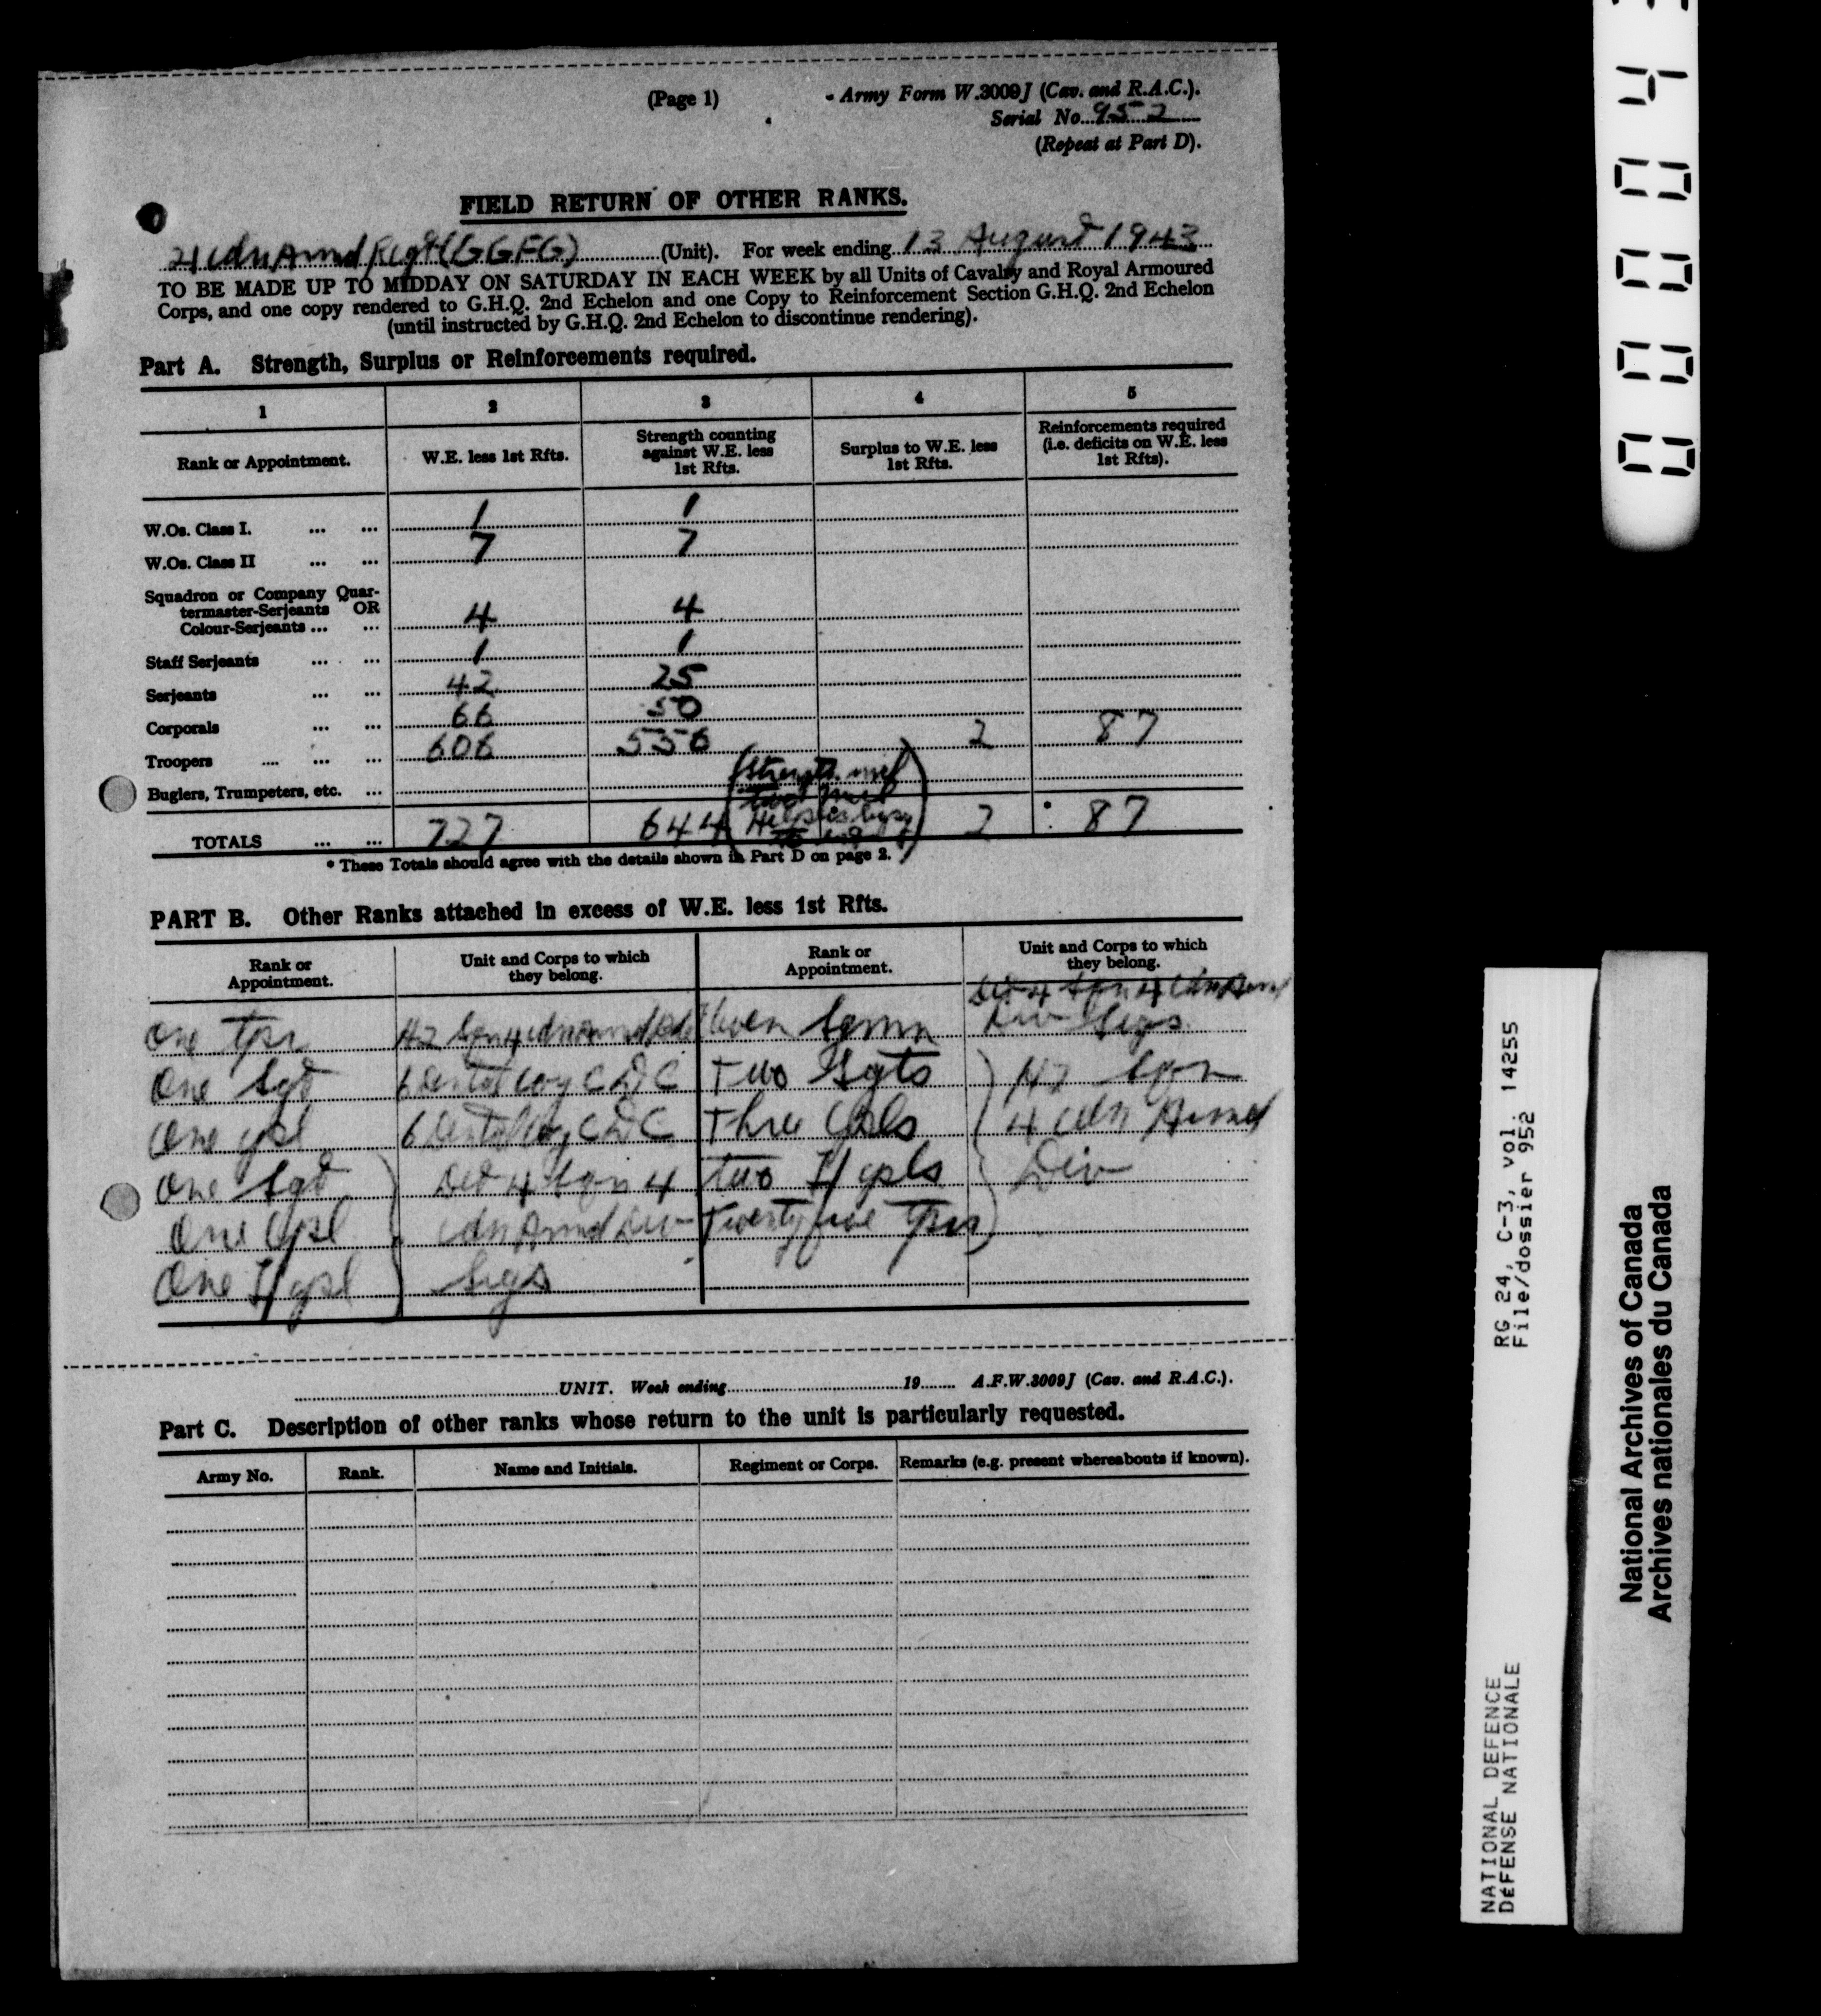 (Page 1)
Army Form W.3009J (Cav. and R.A.C.).
Serial No...952
(Repeat at Part D).
FIELD RETURN OF OTHER RANKS.
21 Cdn Armd Regt (GGFG) (Unit). For week ending 13 August 1943
TO BE MADE UP TO MIDDAY ON SATURDAY IN EACH WEEK by all Units of Cavalry and Royal Armoured
Corps, and one copy rendered to G.H.Q. 2nd Echelon and one Copy to Reinforcement Section G.H.Q. 2nd Echelon
(until instructed by G.H.Q. 2nd Echelon to discontinue rendering).
Part A. Strength, Surplus or Reinforcements required.
1 2 3 4 5
Rank or Appointment. W.E. less 1st Rfts. Strength counting against W.E. less 1st Rfts. Surplus to W.E. less 1st Rfts. Reinforcements required (i.e. deficits on W.E. less 1st Rfts).
W.Os. Class I. ... ... 1 1
W.Os. Class II ... ... 7 7
Squadron or Company Quar-
termaster-Serjeants OR
Colour-Serjeants ... ... 4 4
Staff Serjeants ... ... 1 1
Serjeants ... ... 42 25
Corporals ... ... 66 50
Troopers .... ... ... 606 556 2 87
Buglers, Trumpeters, etc. ...
(Strength incl
two
TOTALS ... ... 727 644 2 87
* These Totals should agree with the details shown in Part D on page 2.
PART B. Other Ranks attached in excess of W.E. less 1st Rfts.
Rank or Appointment. Unit and Corps to which they belong. Rank or Appointment. Unit and Corps to which they belong.
Det 4 Sqn 4 Cdn Armd
One Tpr HQ Sqn 4 Cdn Armd Sgmn Div Sigs
One Sgt 6 Dental Coy CDC Two Sgts HQ Sqn
One Cpl 6 Dental Coy CDC Three Cpls 4 Cdn Armd
One Sgt Det 4 Sqn 4 two L/Cpls Div
One Cpl Cdn Armd Div Twenty five Tprs
One L/Cpl Sigs
UNIT. Week ending 19 A.F.W.3009J (Cav. and R.A.C.).
Part C. Description of other ranks whose return to the unit is particularly requested.
Army No. Rank. Name and Initials. Regiment or Corps. Remarks (e.g. present whereabouts if known).
RG 24, C-3, vol. 14255
File/dossier 952
NATIONAL DEFENCE
DÉFENSE NATIONALE
National Archives of Canada
Archives nationales du Canada